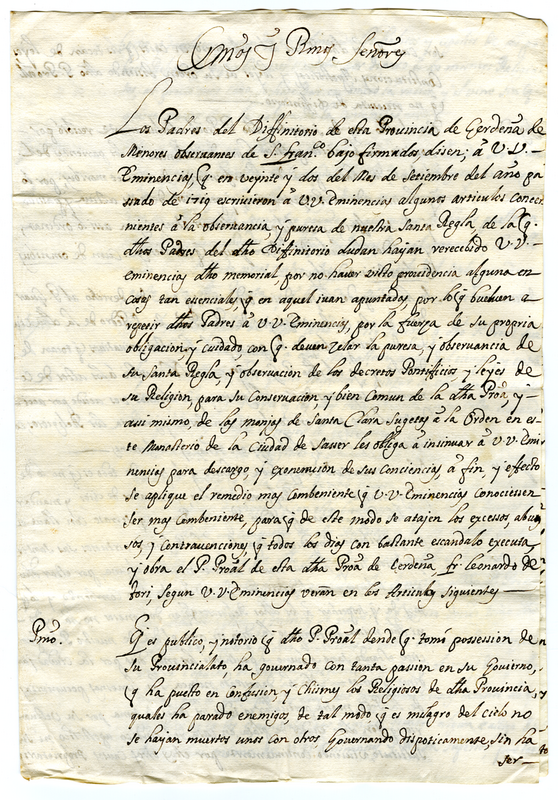 Emos y Rmos Señores
Los Padres del Diffinitorio de esta Provincia de Cerdeña de
Menores observantes de S. Franco. bajo firmados disen; â V.V.
Eminencias, q en veynte y dos del Mes de Setiembre del año pa
ssado de 1719 escrivieron â V.V. Eminencias algunos articules Conce
nientes â la observancia y puresa de nuestra Santa Regla de la q.
dhos Padres del dho Diffinitorio dudan hayan rerecebido V.V.
Eminencias dho memorial, por no haver visto providencia alguna en
Cosas tan esenciales, q en aquel ivan apuntadas, por lo q buelven a
repetir dhos Padres â V.V. Eminencias, por la fuerza de su propria
obligacion, y cuidado con q. deven zelar la puresa, y observancia de
su Santa Regla, y observacion de los decretos Pontificios y leyes de
su Religion, para su Conservacion y bien Comun de la dha Proa, y
assi mismo, de las monjas de Santa Clara Sugetas â la Orden en es
te Monasterio de la Ciudad de Sasser les obliga â insinuar â V.V. Emi
nencias para descargo, y exoneracion de sus Conciencias, â fin, y effecto
se aplique el remedio mas Combeniente q V.V. Eminencias Conociessen
ser mas Combeniente, para q de este modo se atajen los excessos, abu
sos, y Contravenciones q todos los dias con bastante escandalo executa
y obra el P. Proãl de esta dha Proa de Cerdeña fr. Leonardo de
fori, segun V.V. Eminencias veran en los Articules siguientes
Pmo. Q es publico, y notorio q dho P. Proãl dende q. tomó possession de
su Provincialato ha governado con tanta passion en su Govierno,
q ha puesto en Confusion, y Chismes los Religiosos de dha Provincia,
quales ha parado enemigos, de tal modo q es milagro del cielo no
se hayan muertos unos con otros, Governando dispoticamente, sin ha
ser